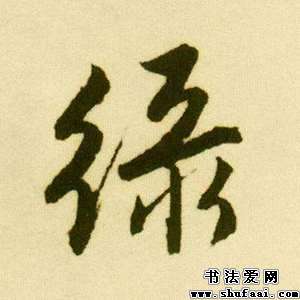 绿
书法爱网
www.shufaai.com